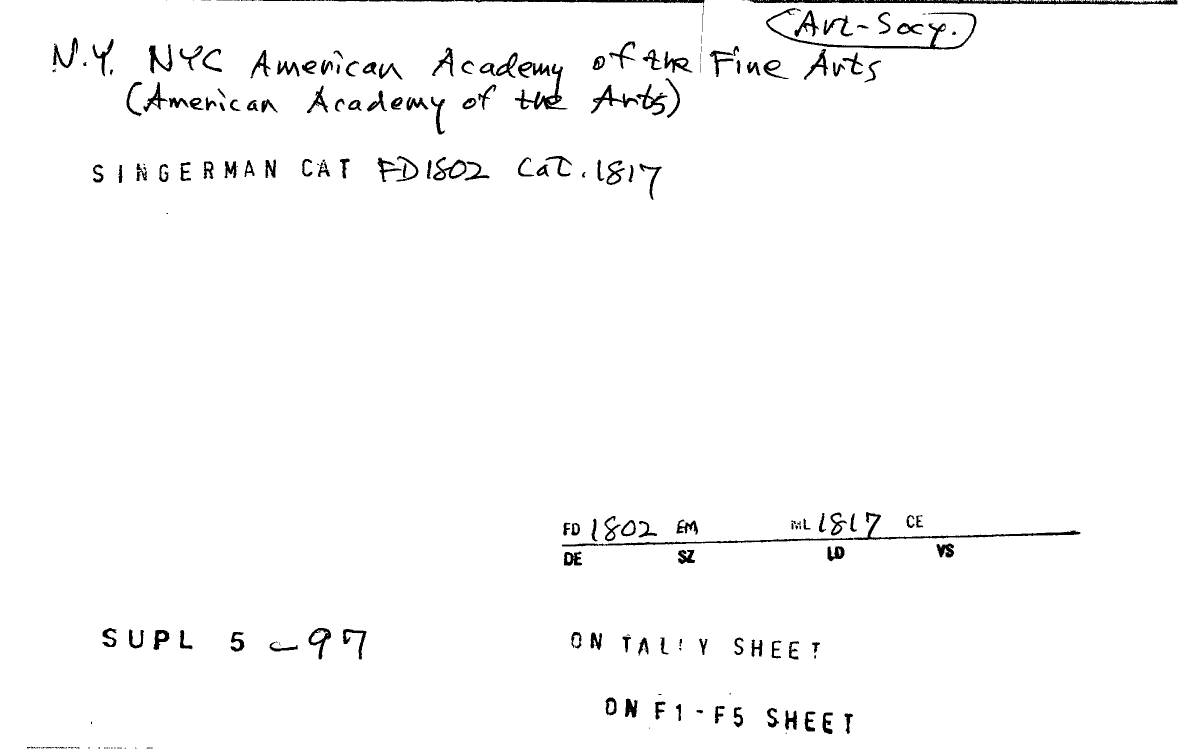 (Art-Socy.)
N.Y. NYC American Academy of the Fine Arts
(American Academy of the Arts)
SINGERMAN CAT FD1802 Cat. 1817
FD 1802 EM ML 1817 CE
DE SZ LD VS
SUPL 5 -97
ON TALLY SHEET
ON F1-F5 SHEET